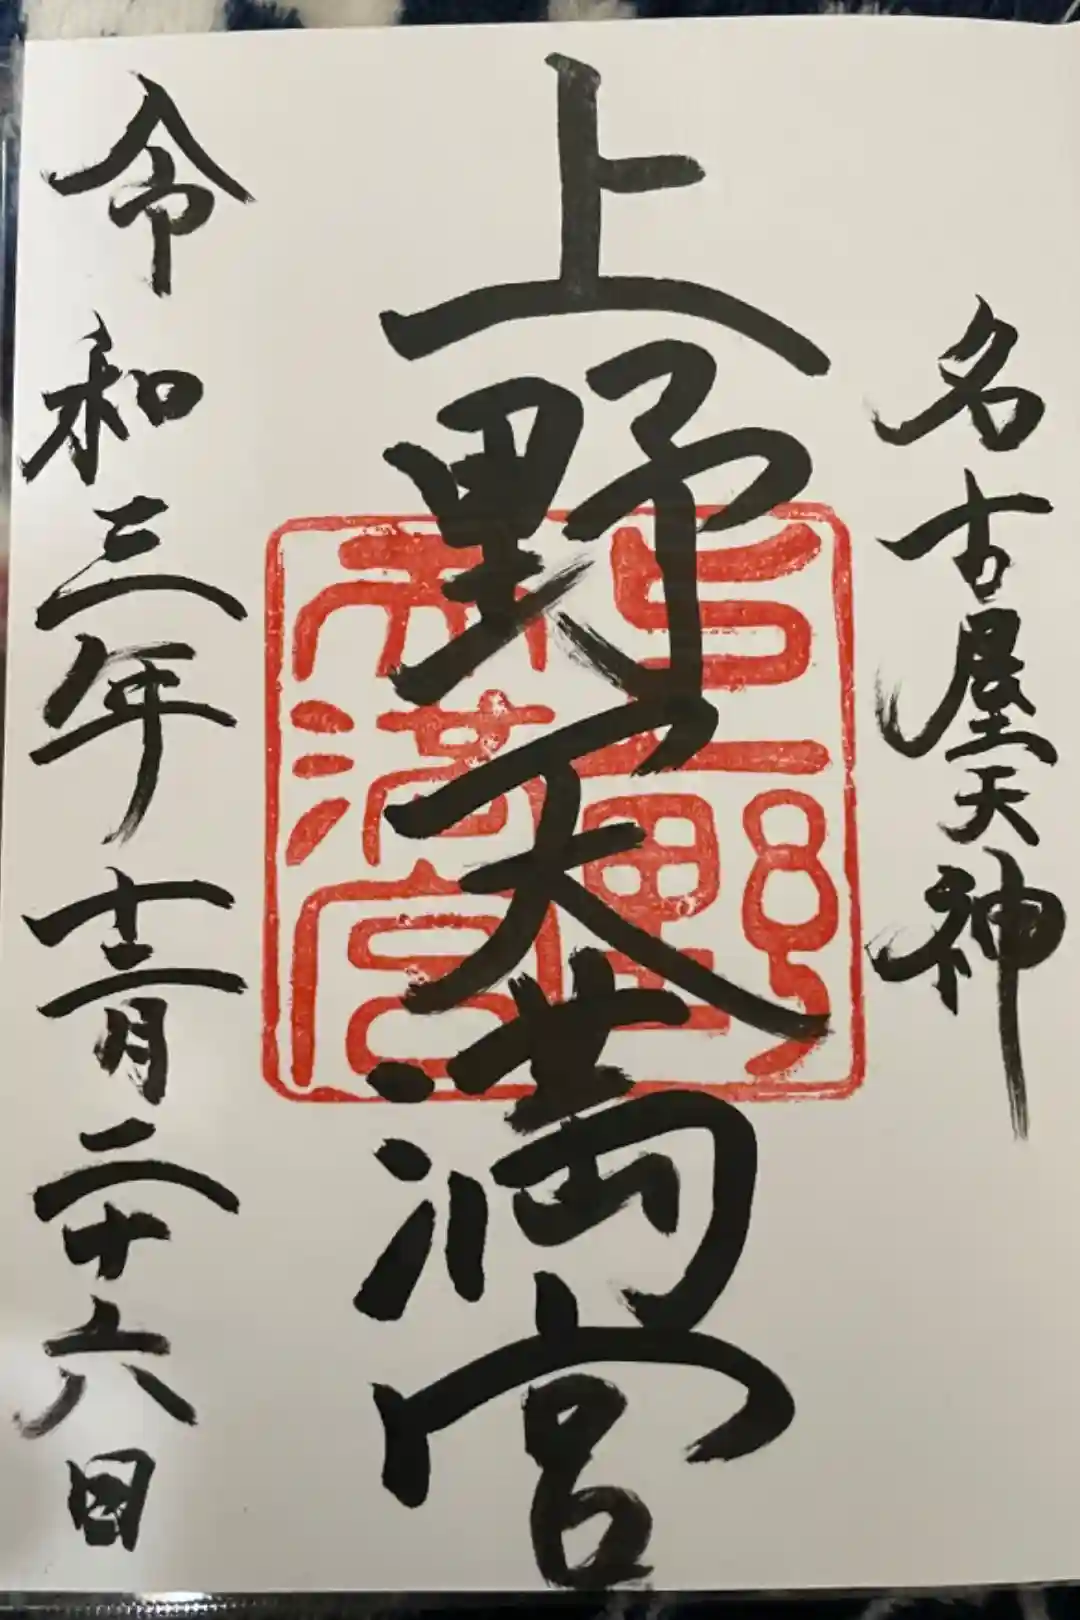 名古屋天神
上野天満宮
上野天満宮
令和三年十二月二十六日